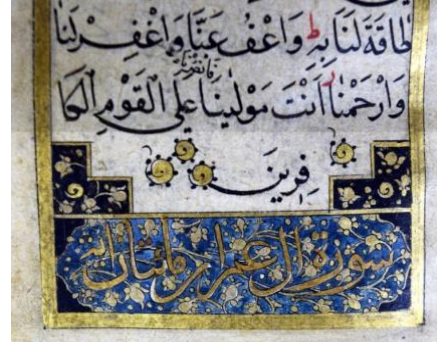 طَاقَةَ لَنَا بِهِ وَاعْفُ عَنَّا وَاغْفِرْ لَنَا
وَارْحَمْنَا أَنْتَ مَوْلٰينَا عَلَى الْقَوْمِ الْكَا
فِرِينَ
سورة آل عمران مائتان آية